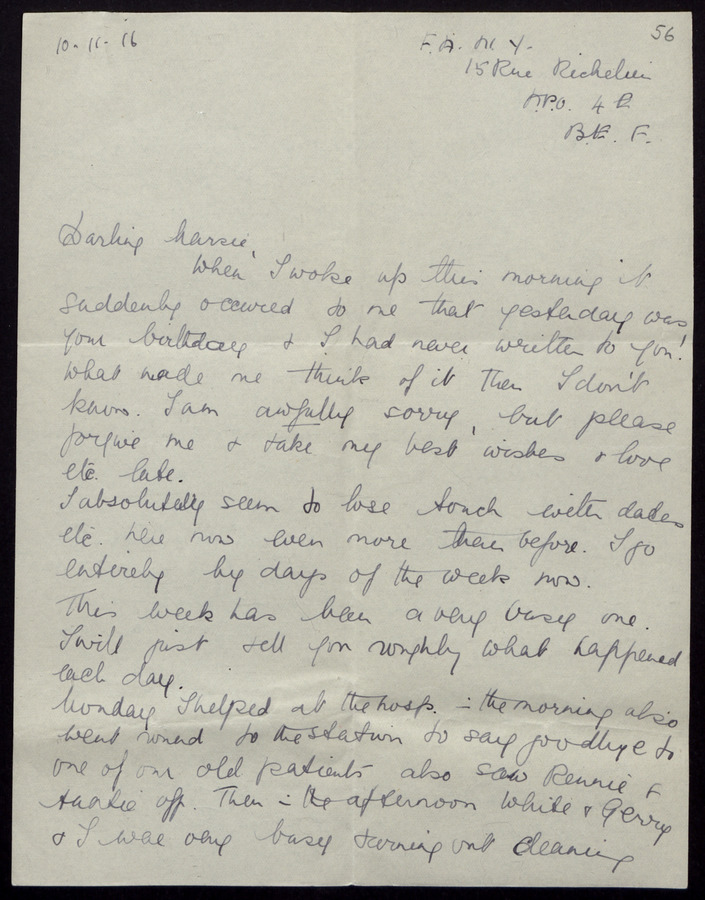 56
10-11-16
F.A.N.Y.
15 Rue Richelieu
A.P.O. 4
B.E.F.
Darling Marsie,
When I woke up this morning it
suddenly occured to me that yesterday was
your birthday & I had never written to you!
What made me think of it then I don't
know. I am awfully sorry, but please
forgive me & take my best wishes & love
etc. late.
I absolutely seem to lose touch with dates
etc. here now even more than before. I go
entirely by days of the week now.
This week has been a very busy one.
I will just tell you roughly what happened
each day.
Monday I helped at the hosp. in the morning also
went round to the station to say goodbye to
one of our old patients also saw Rennie &
off. Then in the afternoon White & Gerry
& I were very busy turning out cleaning